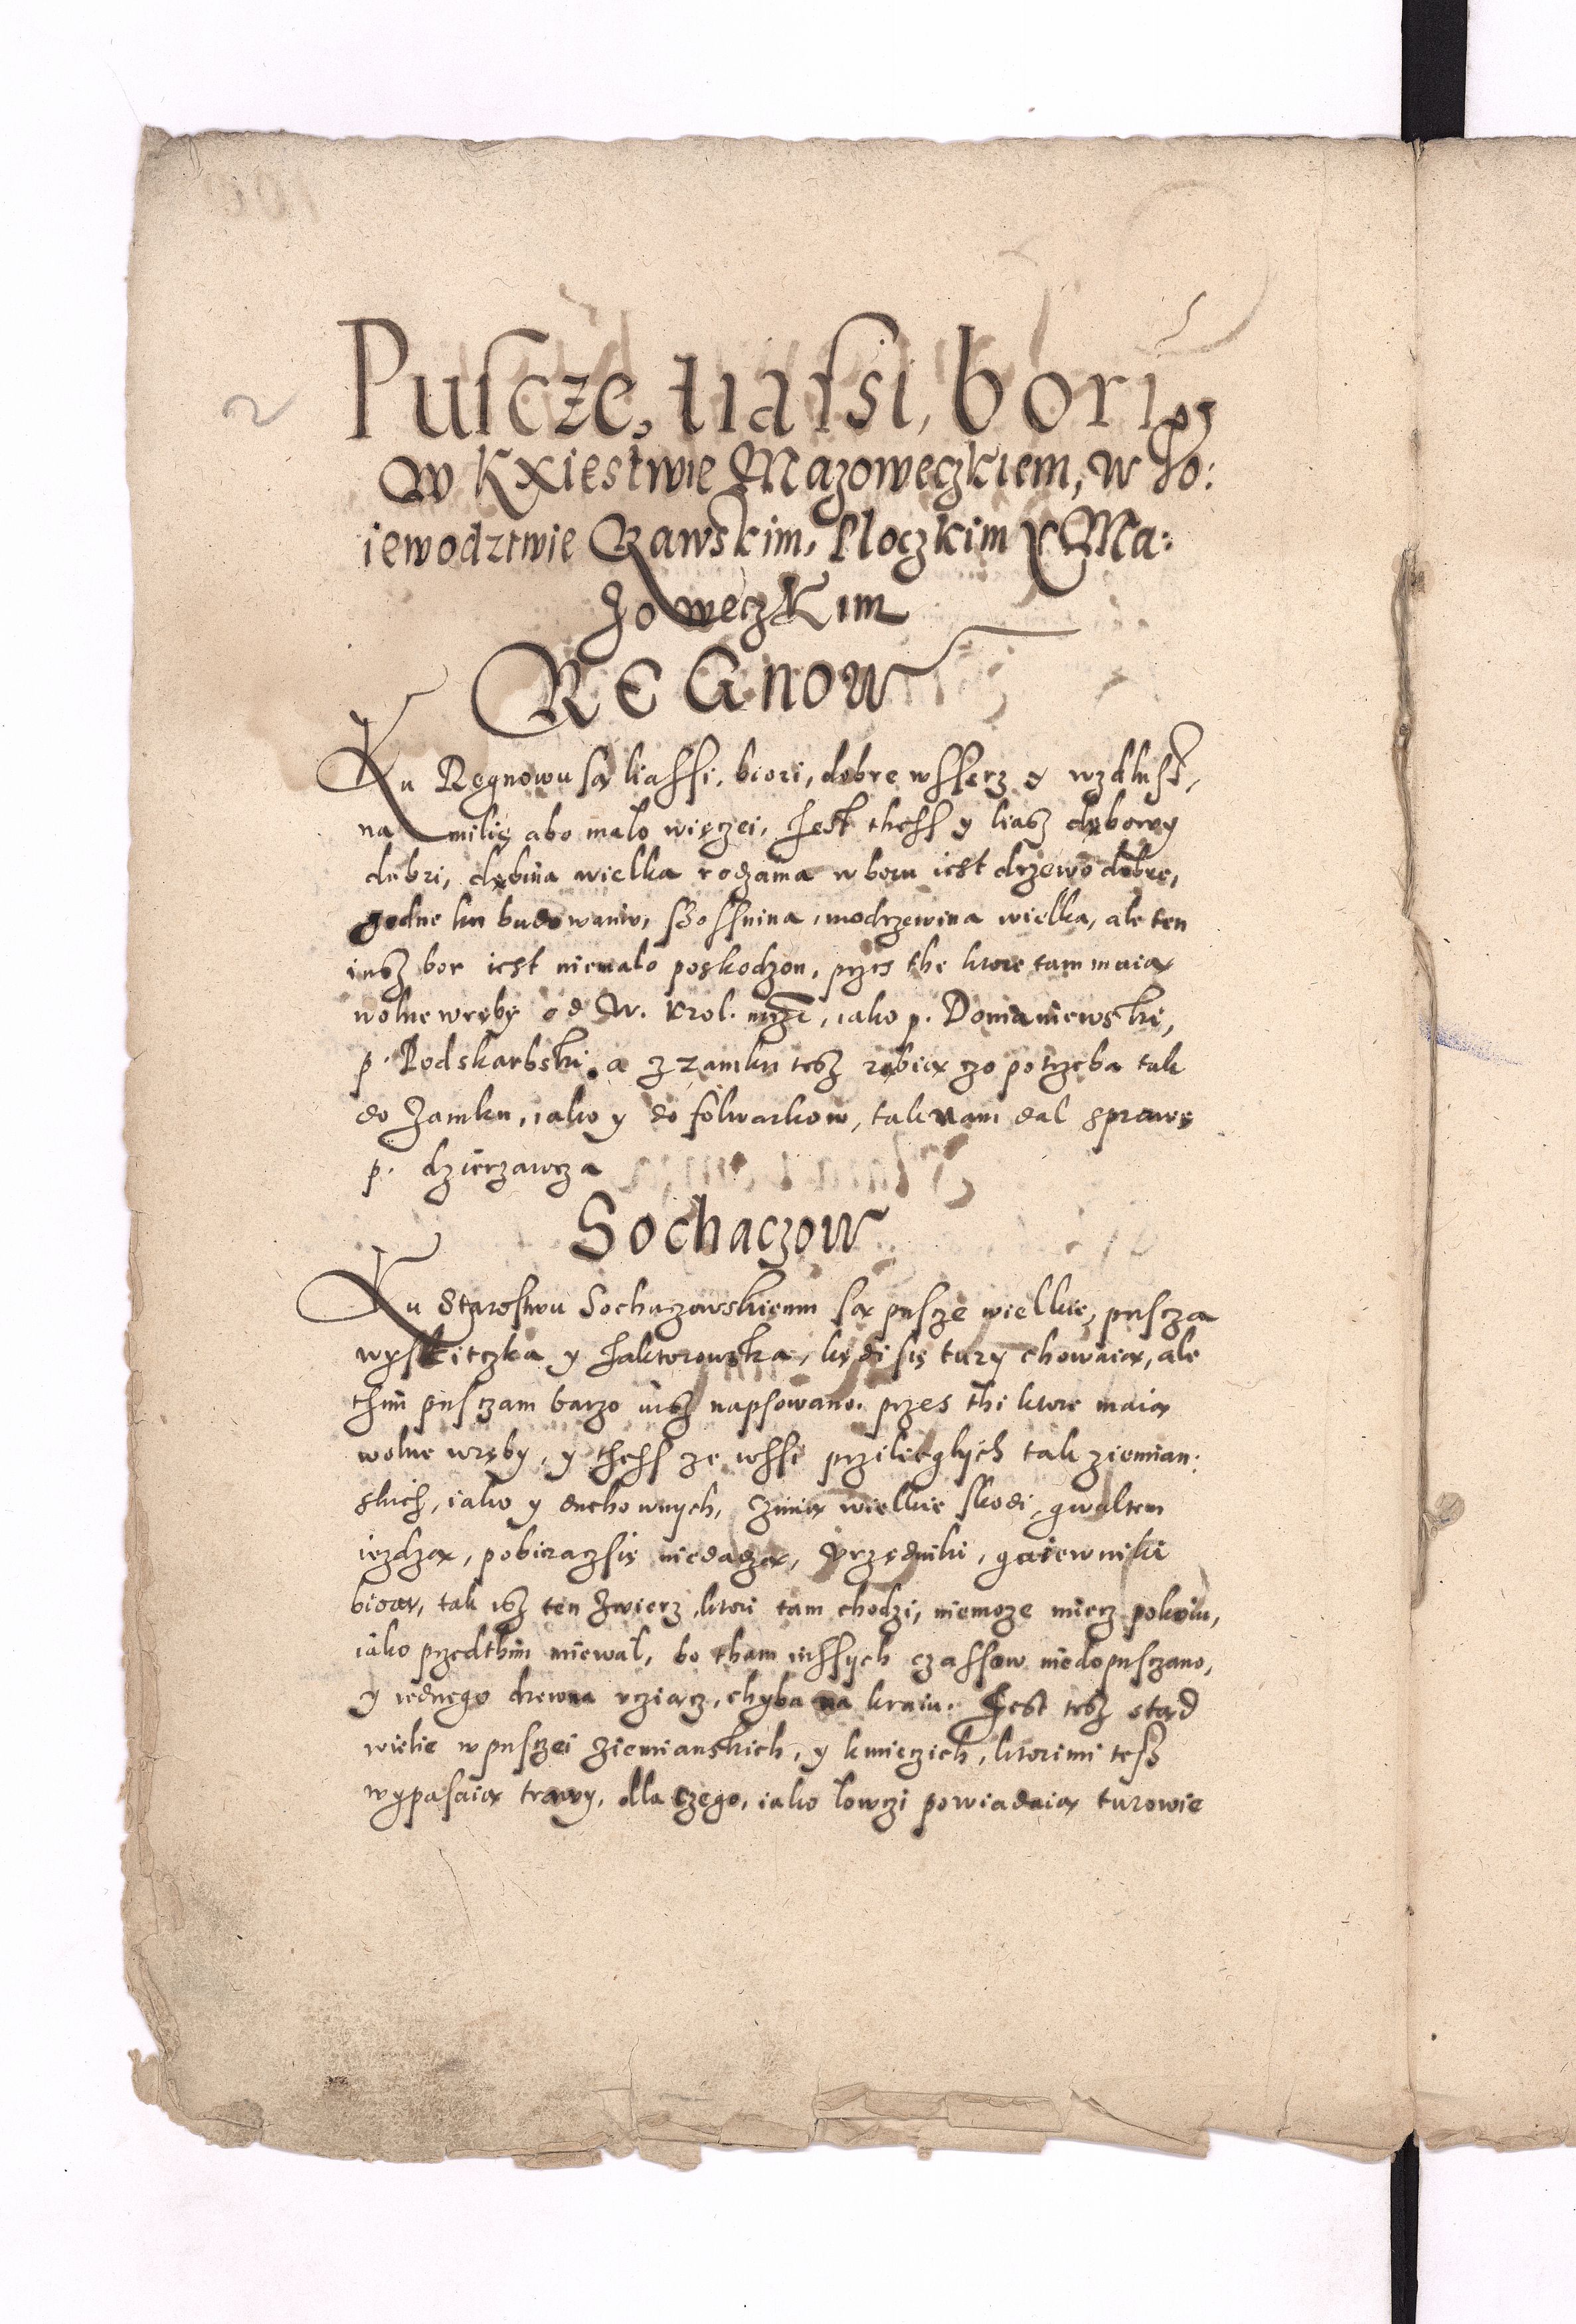 Puscze, liassi, bori
W Kxięstwie Mazoweczkiem, w Wo:
iewodztwie Rawskim, Ploczkim Y Ma:
zoweczkim
REGNOW
Ku Regnowu są liassi, biori, dobre wsserz y wzdlusz,
na milię abo malo więczei, Jest thess y liasz dębowy
dobri, dębina wielka rodzaina w boru iest drzewo dobre,
godne ku budowaniu, szossnina, modrzewina wielka, ale ten
iusz bor iest niemalo poskodzon, przes the ktore tam maią
wolne wręby od W. Krol. mczi, iako p. Domaniewski,
p. Podskarbski, a z zamku tesz rąbią czo potrzeba tak
do Zamku, iako y do folwarkow, tak nam dal sprawę
p. dzierzawcza
Sochaczow
Ku Starostwu Sochaczowskiemu są puscze wielkie, puscza
wyskitczka y Jaktorowska, kędi się tury chowaią, ale
thim pusczam barzo iusz napsowano. przes thi ktore maią
wolne wręby, y thess ze wssi przilieglych tak ziemian:
skich, iako y duchownych, czinią wielkie skodi, gwaltem
iezdzą, pobieraczsię niedadzą, Urzędniki, gaiewniki
bioą, tak isz ten Zwierz, ktori tam chodzi, niemoze miecz pokoiu,
iako przedthim miewal, bo tham inssych czassow niedopusczano,
y iednego drzewna uziącz, chyba na kraiu. Jest tesz stad
wielie w pusczei Ziemianskich, y kmieczich, ktorimi tesz
wypasaią trawy, dla czego, iako lowczi powiadaią turowie